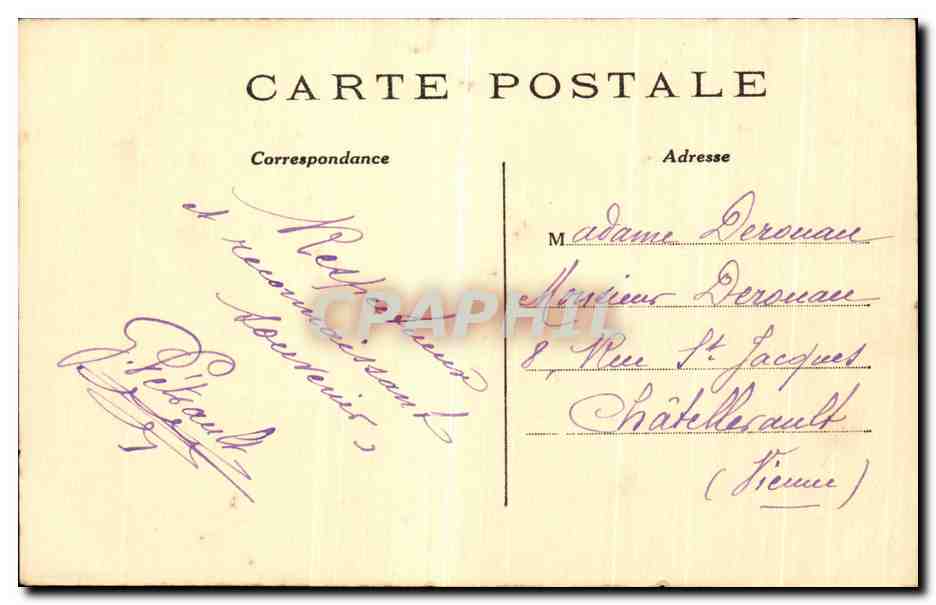 CARTE POSTALE
Correspondance
Respectueux
et reconnaissant
souvenir
G. Pétrault
Adresse
Madame Derouau
Monsieur Derouau
8, Rue St Jacques
Châtellerault
(Vienne)
CPAPHIL